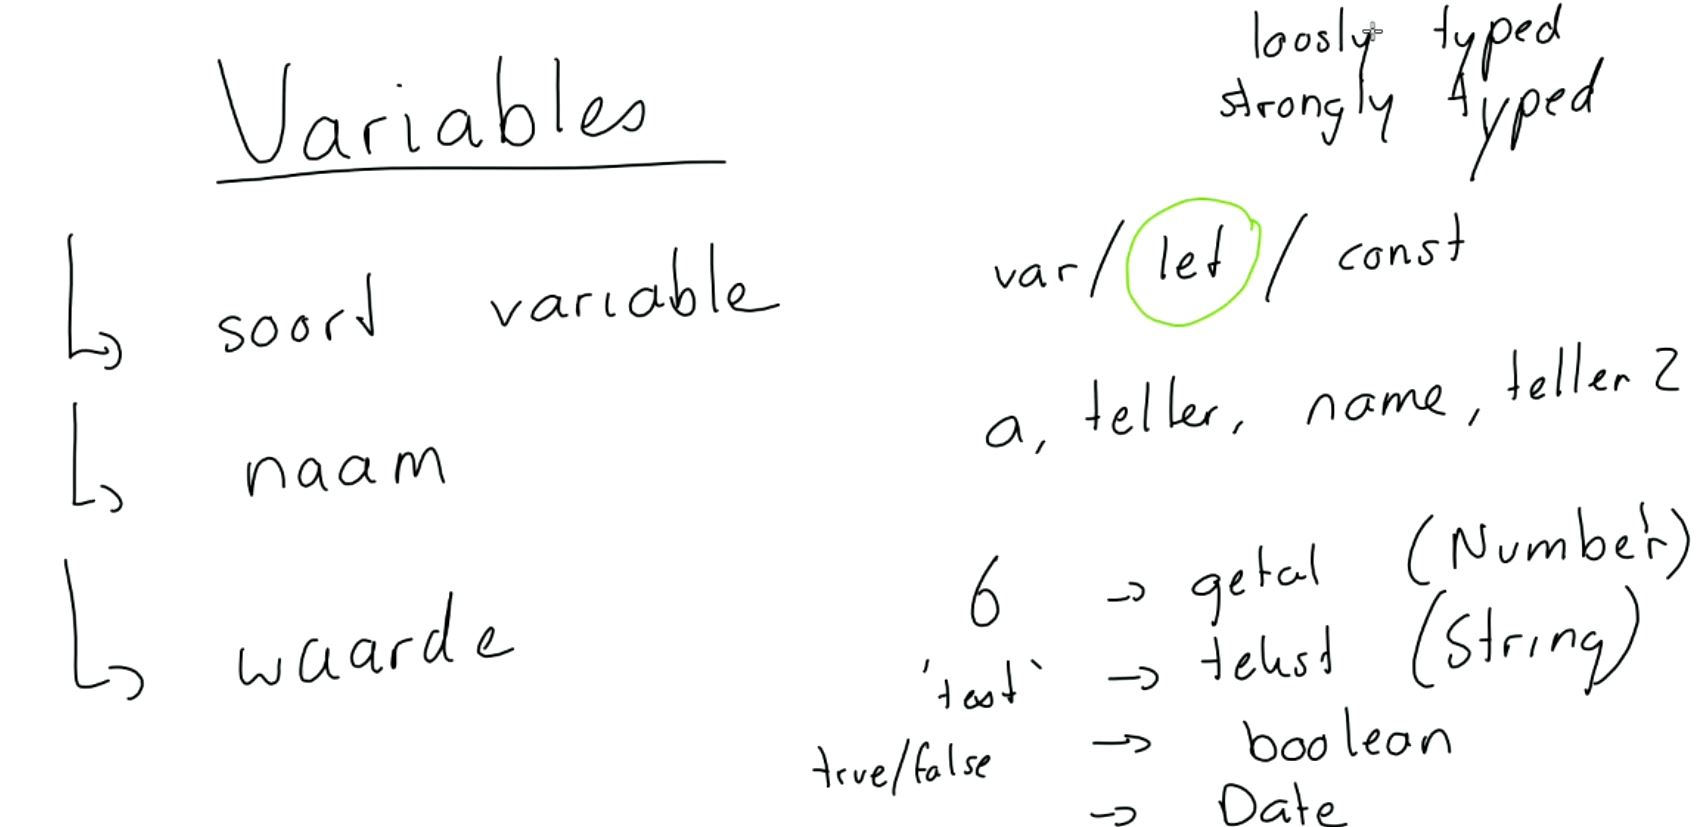 loosly typed
Variables
strongly typed
soort variable
var/ let / const
naam
a, teller, name, teller 2
waarde
6 → getal (Number)
'test' → tekst (String)
true/false → boolean
→ Date